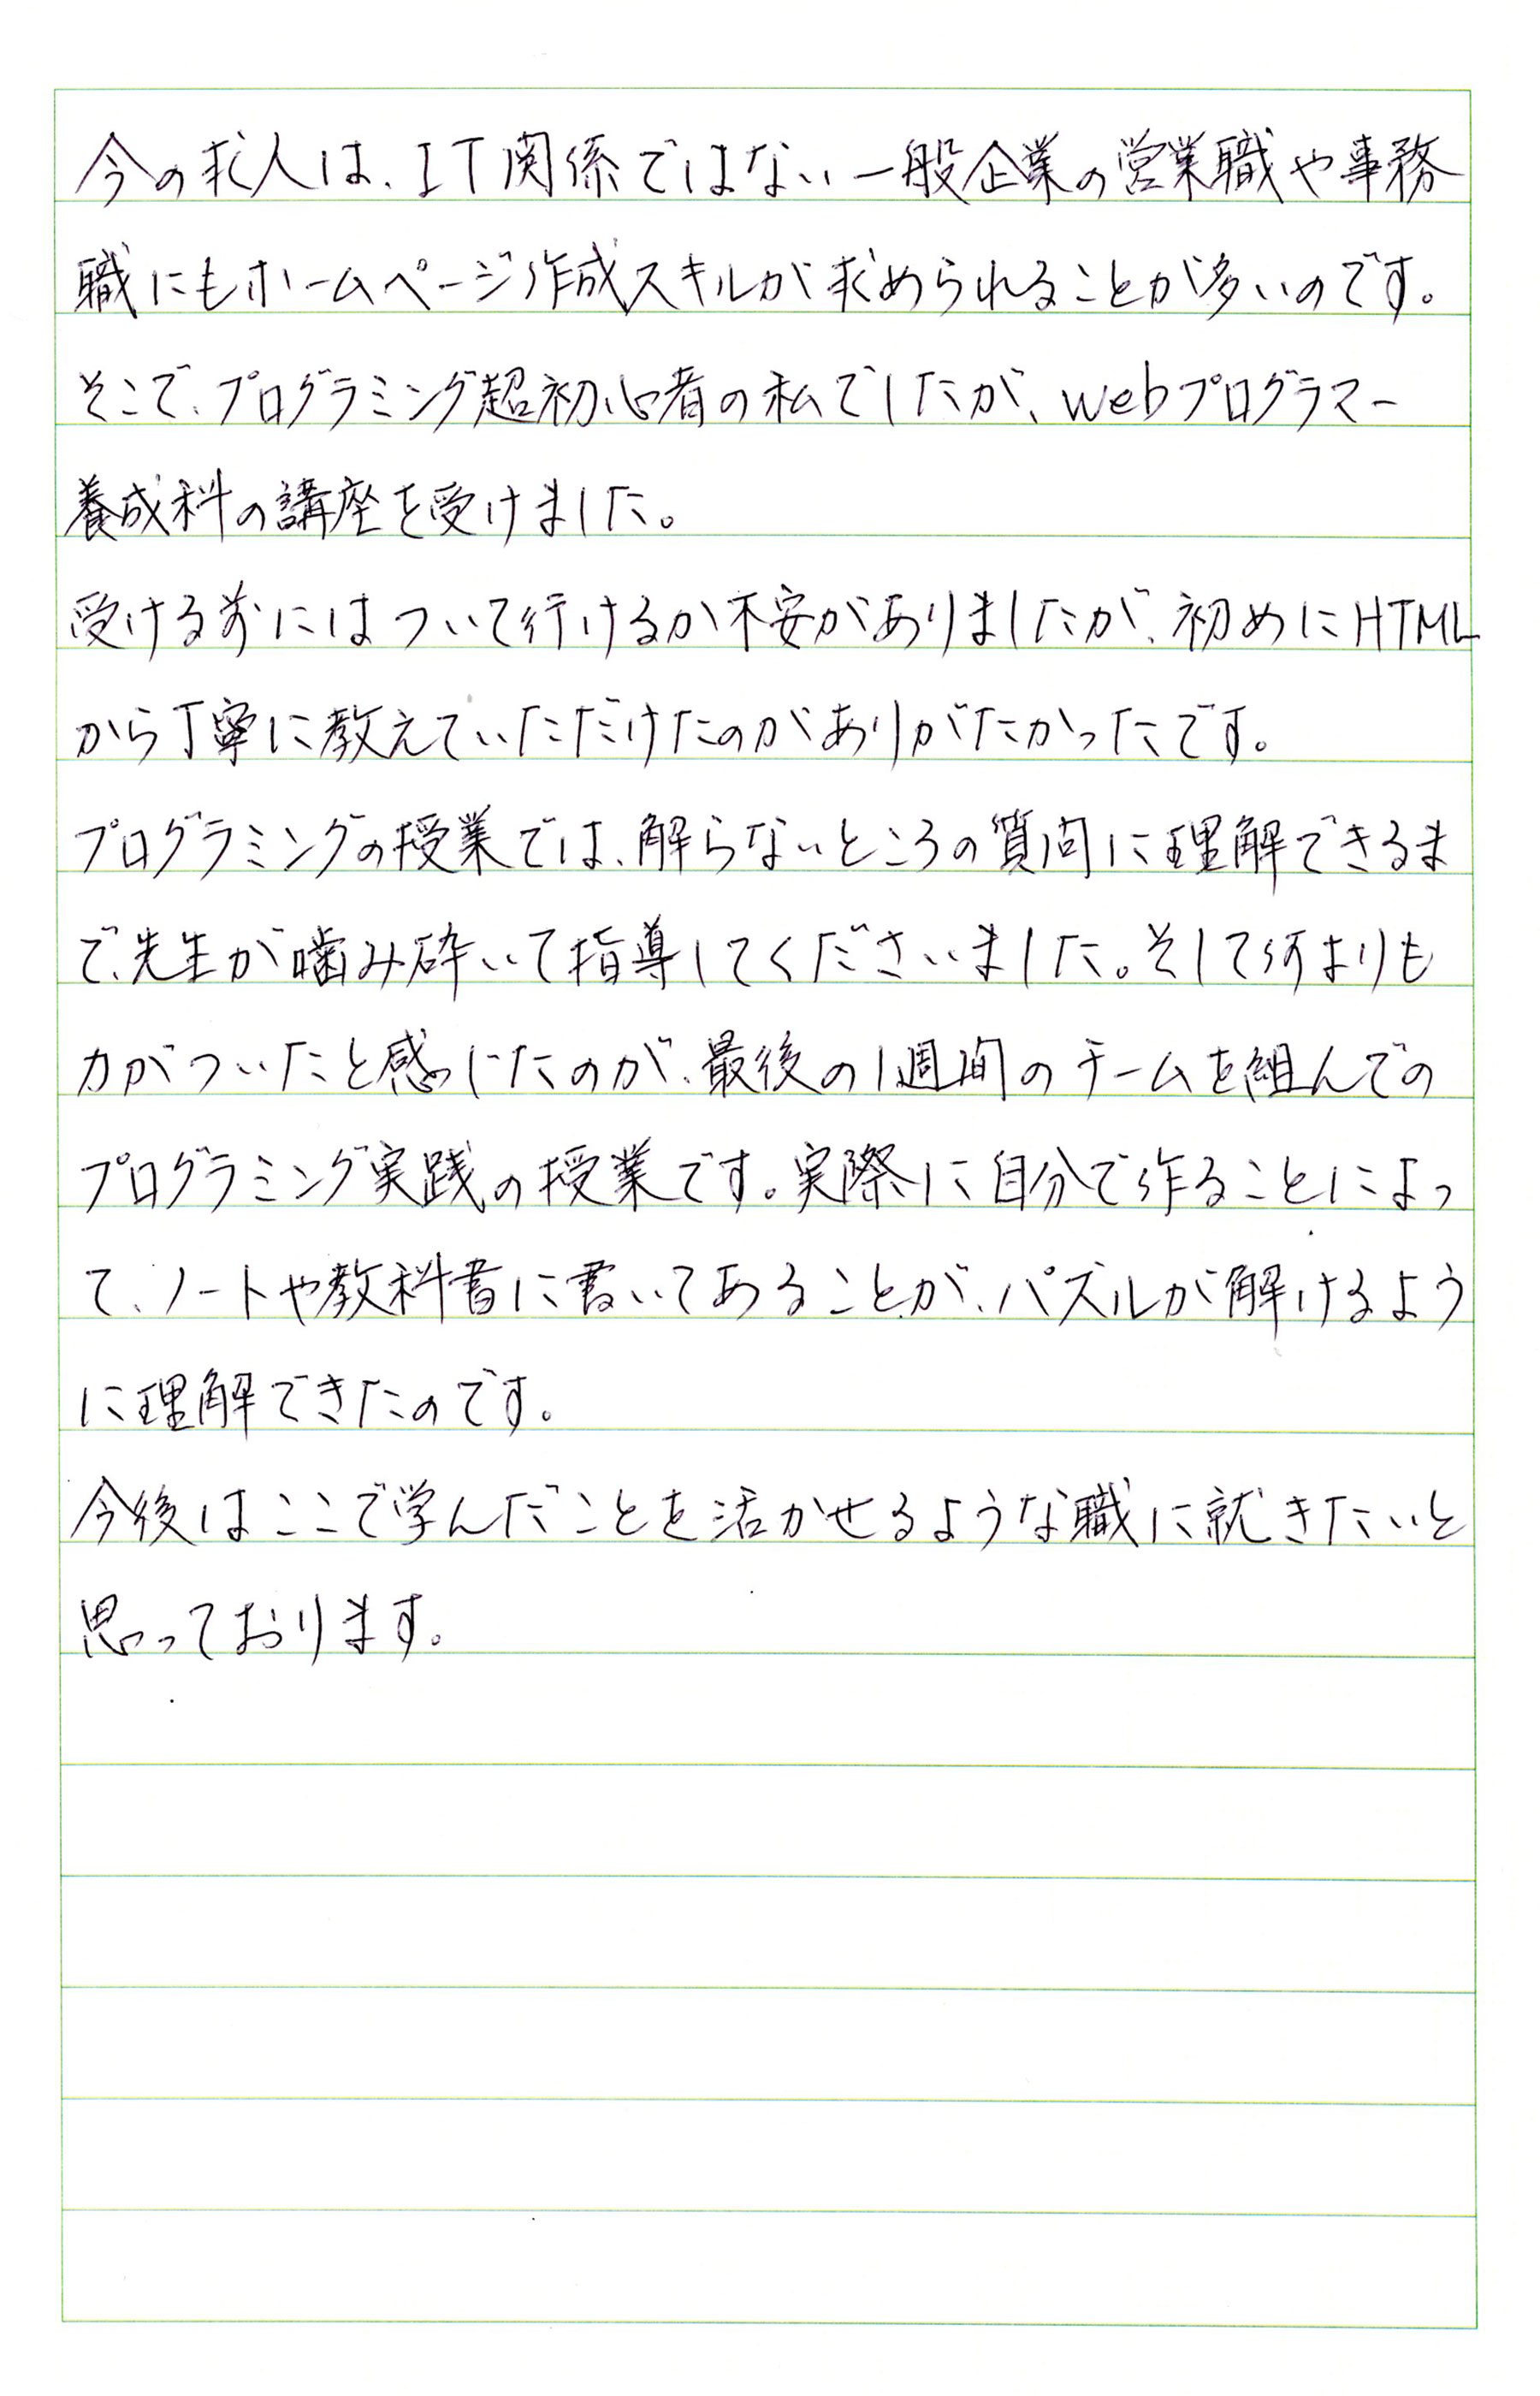 今の求人は、IT関係ではない一般企業の営業職や事務
職にもホームページ作成スキルが求められることが多いのです。
そこで、プログラミング超初心者の私でしたが、webプログラマー
養成科の講座を受けました。
受ける前にはついて行けるか不安がありましたが、初めにHTML
から丁寧に教えていただけたのがありがたかったです。
プログラミングの授業では、解らないところの質問に理解できるま
で、先生が噛み砕いて指導してくださいました。そして何よりも
力がついたと感じたのが、最後の1週間のチームを組んでの
プログラミング実践の授業です。実際に自分で作ることによっ
て、ノートや教科書に書いてあることが、パズルが解けるよう
に理解できたのです。
今後はここで学んだことを活かせるような職に就きたいと
思っております。